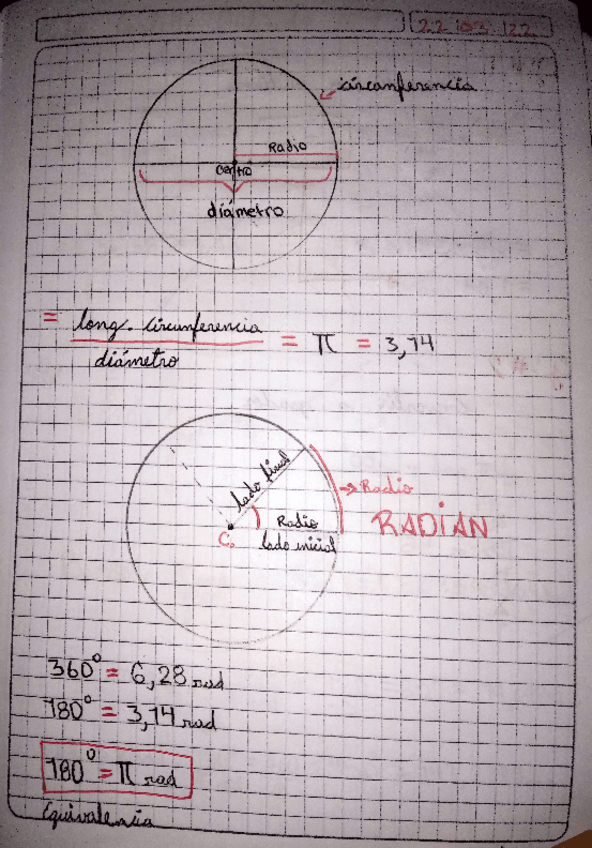 22 03 22
circunferencia
Radio
centro
diámetro
= long. circunferencia
diámetro
= π = 3,14
lado final
→ Radio
RADIAN
Radio
C.
lado inicial
360° = 6,28 rad
180° = 3,14 rad
180° = π rad
Equivalencia